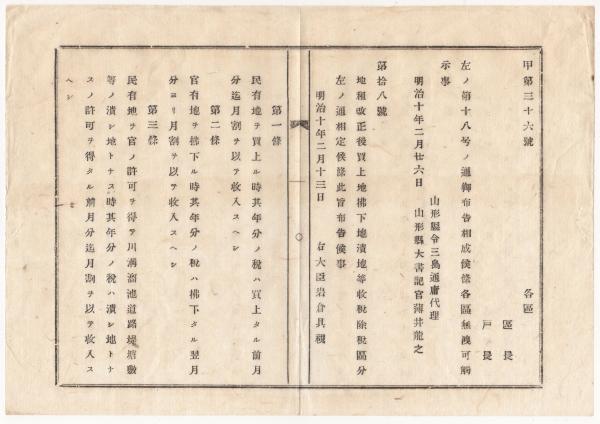 甲第三十六號
各區
區長
戸長
左ノ第十八号ノ通御布告相成候條各區無洩可觸
示事
山形縣令三島通庸代理
明治十年二月廿六日　山形縣大書記官薄井龍之
第拾八號
地租改正後買上地拂下地潰地等收税除税區分
左ノ通相定候條此旨布告候事
明治十年二月十三日　右大臣岩倉具視
第一條
民有地ヲ買上ル時其年分ノ税ハ買上タル前月
分迄月割ヲ以テ收入スヘシ
第二條
官有地ヲ拂下ル時其年分ノ税ハ拂下タル翌月
分ヨリ月割ヲ以テ收入スヘシ
第三條
民有地ヲ官ノ許可ヲ得テ川溝溜池道路堤塘敷
等ノ潰シ地トナス時其年分ノ税ハ潰シ地トナ
スノ許可ヲ得タル前月分迄月割ヲ以テ收入ス
ヘシ